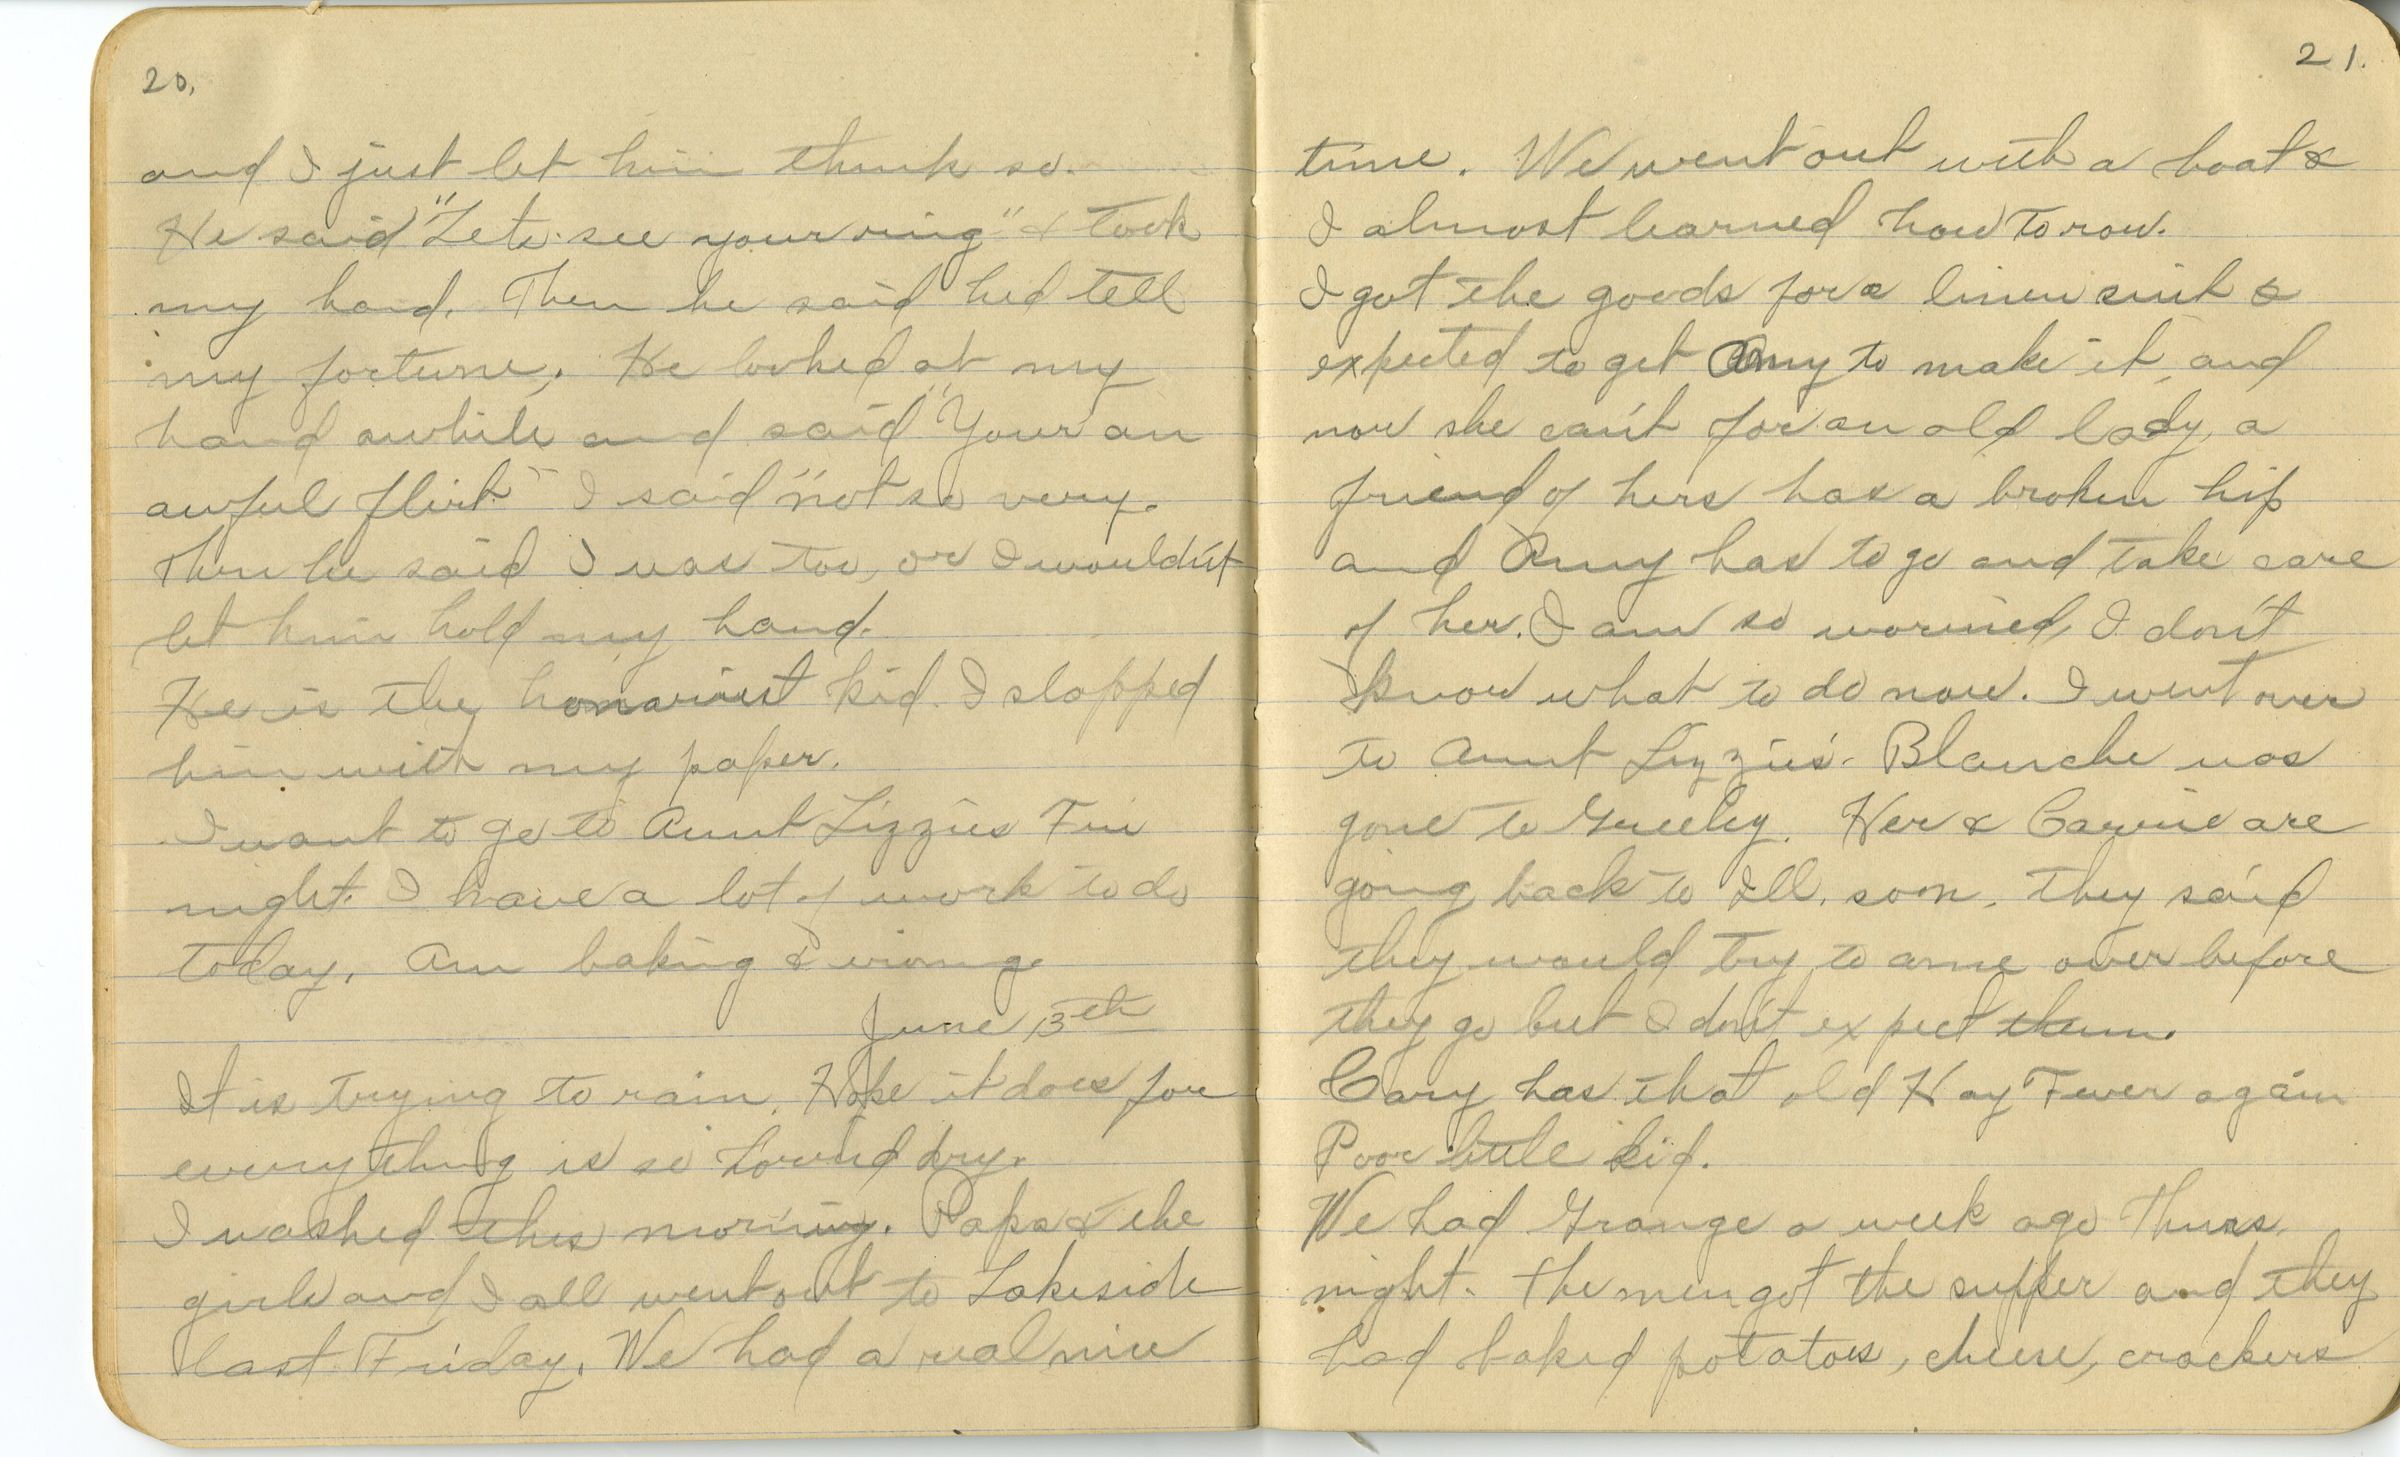 20.
and I just let him think so.
He said "Lets see your ring" & took
my hand. Then he said hed tell
my fortune. He looked at my
hand awhile and said "Your an
awful flirt" I said "not so very.
Then he said I was too, or I wouldn't
let him hold my hand.
He is the honariest kid. I slapped
him with my paper.
I want to go to Aunt Lizzies Fri
night. I have a lot of work to do
today. Am baking & ironing.
June 13th
It is trying to rain. Hope it does for
everything is so horrid dry.
I washed this morning. Papa & the
girls and I all went out to Lakeside
last Friday. We had a real nice
21.
time. We went out with a boat &
I almost learned how to row.
I got the goods for a linen suit &
expected to get Amy to make it, and
now she can't for an old lady, a
friend of hers has a broken hip
and Amy has to go and take care
of her. I am so worried, I don't
know what to do now. I went over
to Aunt Lizzie's. Blanche was
gone to Greeley. Her & Carrie are
going back to Ill. soon. They said
they would try to come over before
they go but I don't expect them.
Cary has that old Hay Fever again
Poor little kid.
We had Grange a week ago Thurs.
night. The men got the supper and they
had baked potatoes, cheese, crackers